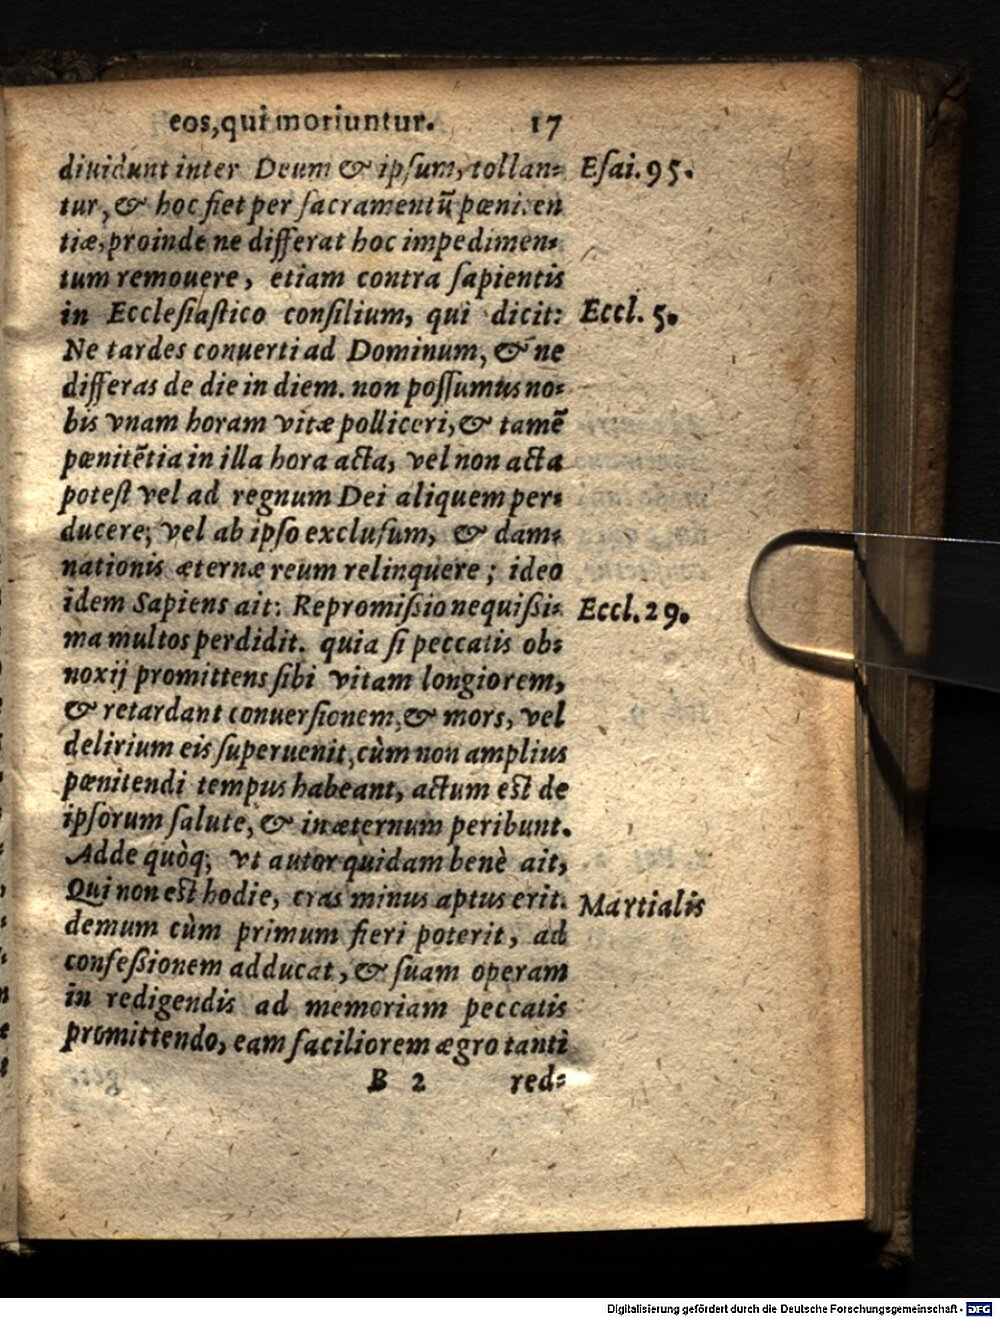 eos, qui moriuntur. 17
diuidunt inter Deum & ipsum, tollan- Esai. 95.
tur, & hoc fiet per sacramentũ pœniten
tiæ, proinde ne differat hoc impedimen-
tum remouere, etiam contra sapientis
in Ecclesiastico consilium, qui dicit: Eccl. 5.
Ne tardes conuerti ad Dominum, & ne
differas de die in diem. non possumus no-
bis vnam horam vitæ polliceri, & tamẽ
pœnitẽtia in illa hora acta, vel non acta
potest vel ad regnum Dei aliquem per-
ducere; vel ab ipso exclusum, & dam-
nationis æternæ reum relinquere; ideo
idem Sapiens ait: Repromißio nequißi- Eccl. 29.
ma multos perdidit. quia si peccatis ob-
noxij promittens sibi vitam longiorem,
& retardant conuersionem, & mors, vel
delirium eis superuenit, cùm non amplius
pœnitendi tempus habeant, actum est de
ipsorum salute, & in æternum peribunt.
Adde quòq; vt autor quidam benè ait,
Qui non est hodie, cras minus aptus erit. Martialis
demum cùm primum fieri poterit, ad
confeßionem adducat, & suam operam
in redigendis ad memoriam peccatis
promittendo, eam faciliorem ægrotanti
B 2 red-
Digitalisierung gefördert durch die Deutsche Forschungsgemeinschaft - DFG